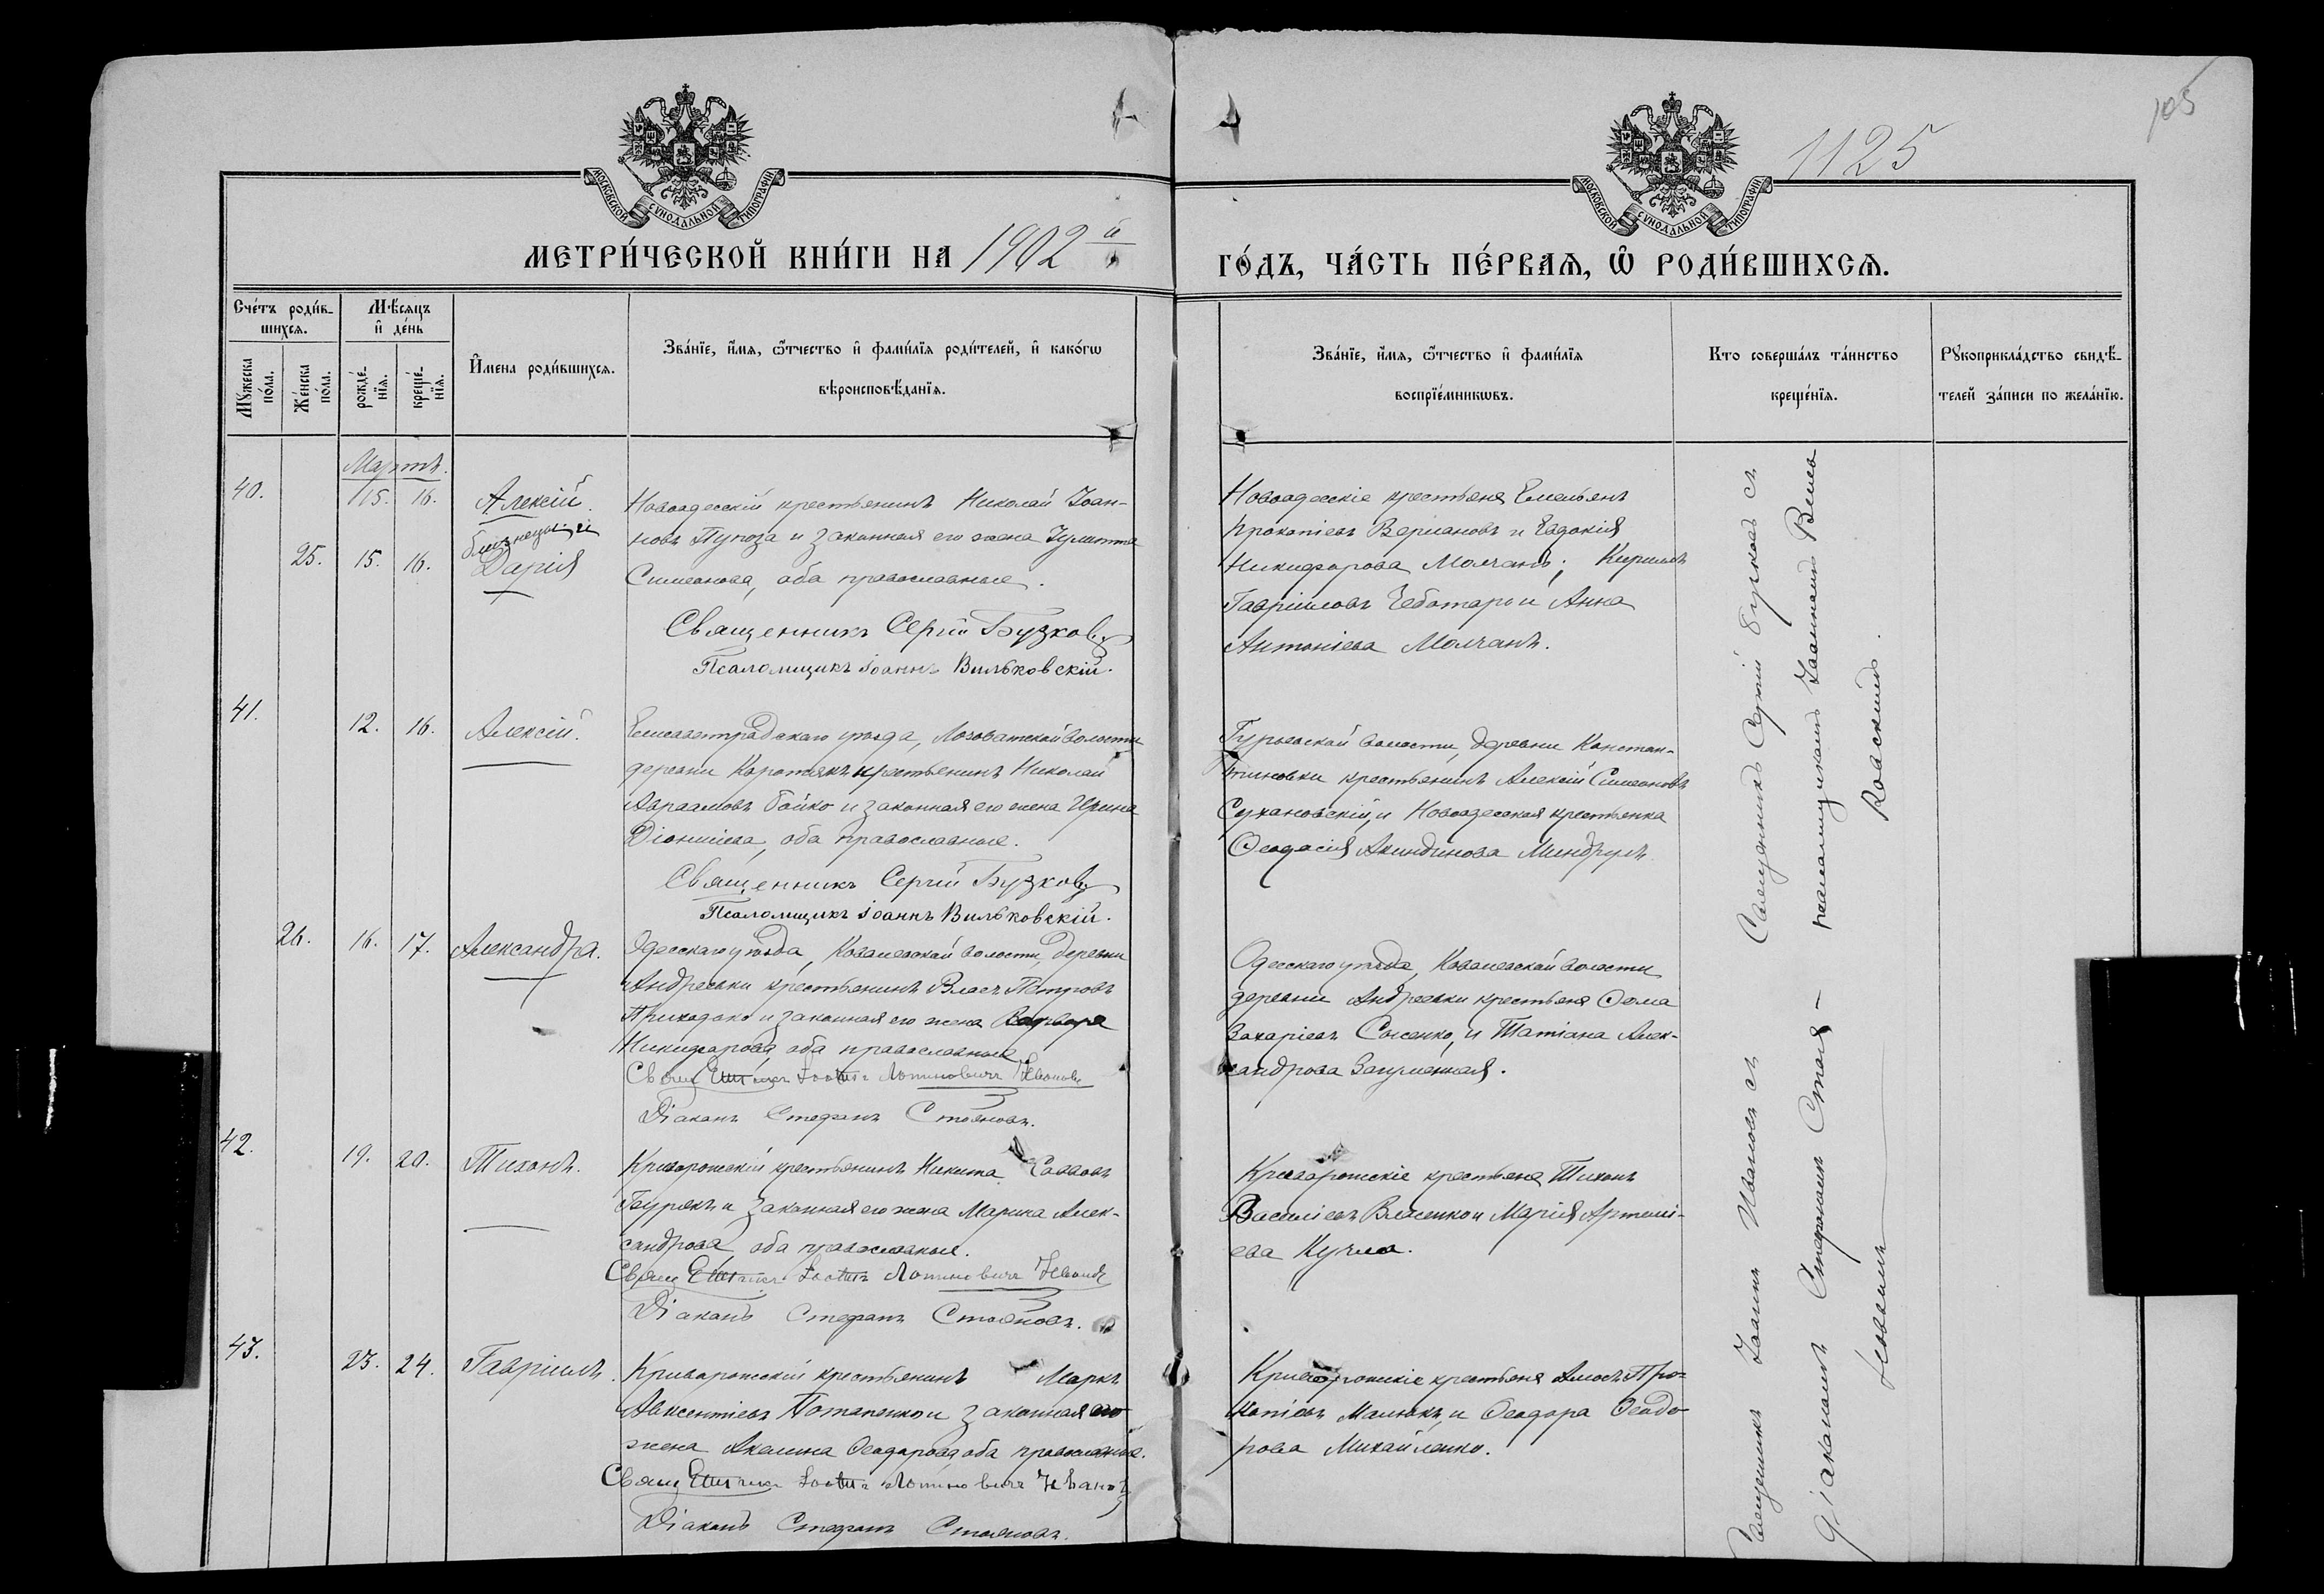 105
1125
МОСКОВСКОЙ СѴНОДАЛЬНОЙ ТИПОГРАФІИ
МОСКОВСКОЙ СѴНОДАЛЬНОЙ ТИПОГРАФІИ
МЕТРИ́ЧЕСКОЙ КНИ́ГИ НА 1902 й
ГО́ДЪ, ЧА́СТЬ ПЕ́РВАѦ, Ѡ҆ РОДИ́ВШИХСѦ.
Сче́тъ роди́в-
шихсѧ.
Мꙋ́жеска
по́ла.
Же́нска
по́ла.
Мѣ́сѧцъ
и҆ де́нь
рожде́-
нїѧ.
креще́-
нїѧ.
И҆мена роди́вшихсѧ.
Зва́нїе, и҆́мѧ, ѻ҆́тчество и҆ фами́лїѧ роди́телей, и҆ како́гѡ
вѣроисповѣ́данїѧ.
Зва́нїе, и҆́мѧ, ѻ҆́тчество и҆ фами́лїѧ
воспрїе́мникѡвъ.
Кто соверша́лъ та́инство
креще́нїѧ.
Рꙋкоприкла́дство свидѣ́-
телей за́писи по жела́нїю.
Мартъ.
40.
15. 16.
Алексій.
близнецы
25.
15. 16.
Дарія
Новоодесскій крестьянинъ Николай Іоан-
новъ Пугоза и законная его жена Іулитта
Симеонова, оба православные.
Священникъ Сергій Бузковъ
Псаломщикъ Іоаннъ Вильковскій.
Новоодесскіе крестьяне Емельянъ
Прокопіевъ Вериановъ и Евдокія
Никифорова Молчанъ; Кириллъ
Гавріиловъ Чеботарь и Анна
Антоніева Молчанъ.
41.
12. 16.
Алексій.
Елисаветградскаго уѣзда, Лозоватской волости
деревни Коротякъ крестьянинъ Николай
Авраамовъ Бойко и законная его жена Ирина
Діонисіева, оба православные.
Священникъ Сергій Бузковъ
Псаломщикъ Іоаннъ Вильковскій.
Гурьевской волости, деревни Констан-
тиновки крестьянинъ Алексій Симеоновъ
Сухановскій, и Новоодесская крестьянка
Ѳеодосія Акиндинова Миндруль
26.
16. 17.
Александра.
Одесскаго уѣзда, Ковалевской волости, деревни
Андреевки крестьянинъ Власъ Петровъ
Приходько и законная его жена Варвара
Никифорова, оба православные
Свящ Іоаннъ Логиновичъ Ивановъ
Діаконъ Стефанъ Стояновъ.
Одесскаго уѣзда, Ковалевской волости
деревни Андреевки крестьяне Ѳома
Захаріевъ Сысенко, и Татіана Алек-
сандрова Загуменная.
42.
19. 20.
Тихонъ.
Криворожскій крестьянинъ Никита Саввовъ
Бурякъ и законная его жена Марина Алек-
сандрова, оба православные.
Свящ Іоаннъ Логиновичъ Ивановъ
Діаконъ Стефанъ Стояновъ.
Криворожскіе крестьяне Тихонъ
Василіевъ Власенко и Марія Артеми-
ева Кучма.
43.
23. 24.
Гавріилъ.
Криворожскій крестьянинъ Маркъ
Авксентіевъ Потапенко и законная его
жена Акилина Ѳеодорова, оба православные.
Свящ Іоаннъ Логиновичъ Ивановъ
Діаконъ Стефанъ Стояновъ.
Криворожскіе крестьяне Амосъ Про-
копіевъ Малюкъ, и Ѳеодора Ѳеодо-
рова Михайленко.
Священникъ Сергій Бузковъ съ
псаломщикомъ Іоанномъ Виль-
ковскимъ.
Священникъ Іоаннъ Ивановъ съ
діакономъ Стефаномъ Стоя-
новымъ